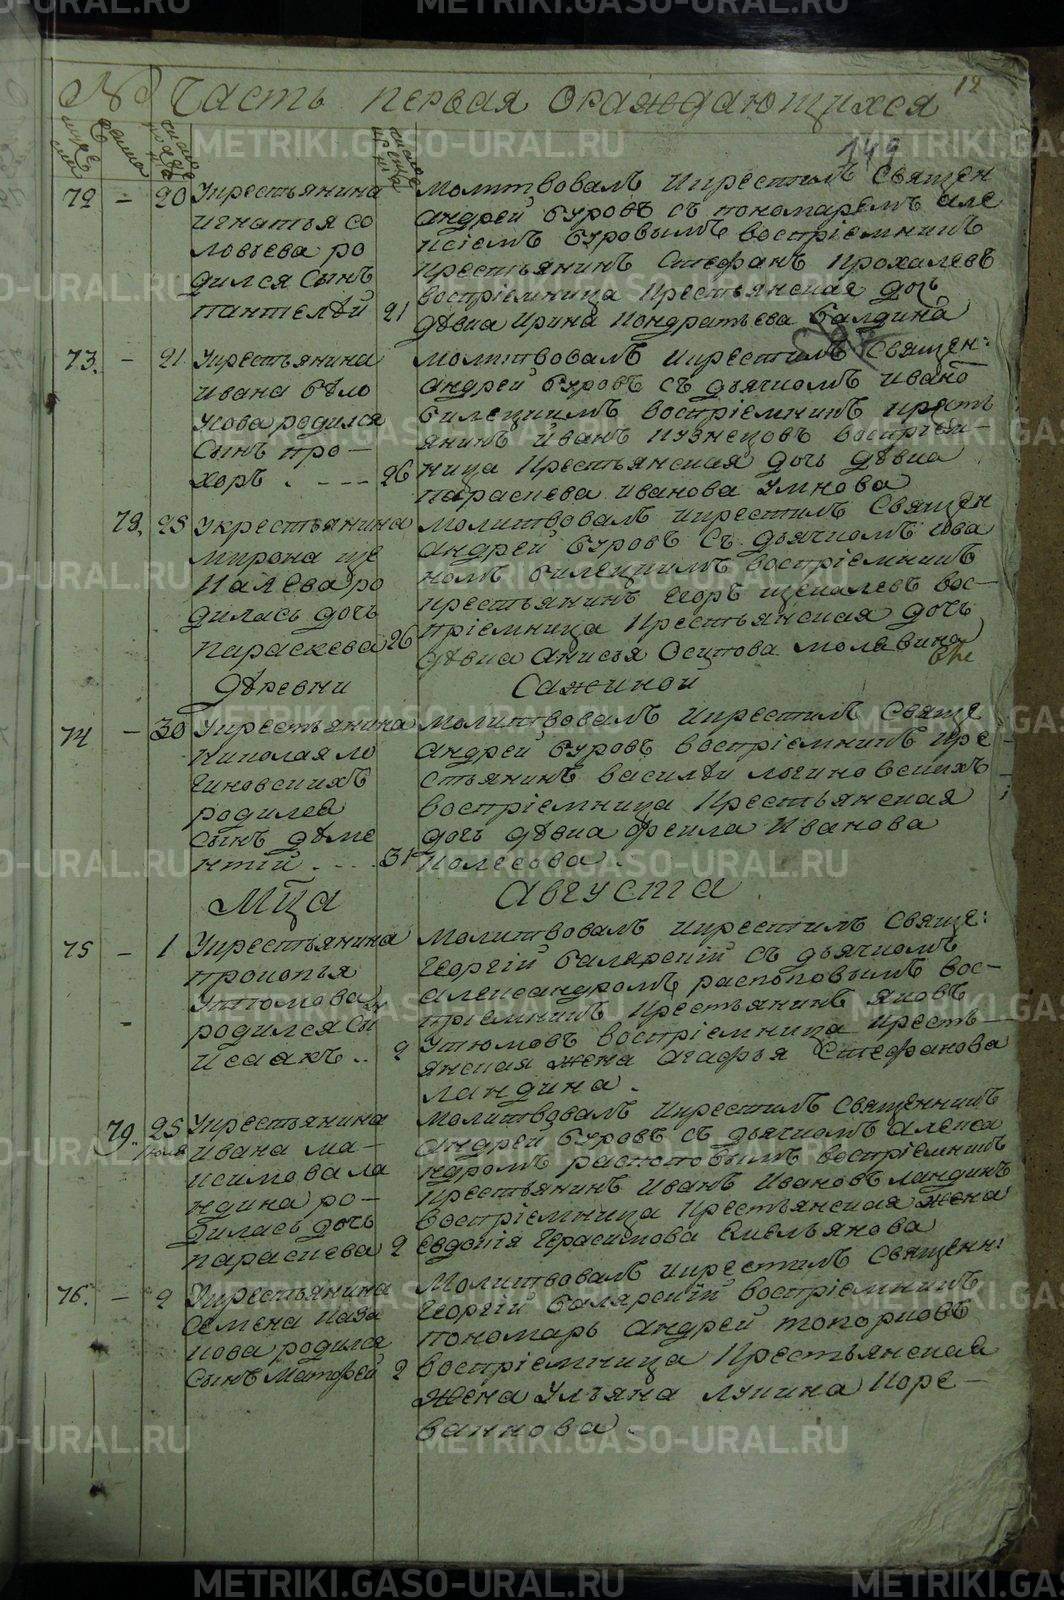 12
№ Часть первая ораждающихся
149
72 – 20 Укрестьянина 
игнатья со
ловьева ро
дился сынъ
пантелѣй 21
Молитвовалъ икрестилъ Священ
андрей буровъ съ пономаремъ але
ксіемъ буровымъ воспріемникъ
крестьянинъ Стефанъ Прохалевъ
воспріемница Крестьянская дочь
дѣвка Ирина Кондратьева балдина
73. – 21 Укрестьянина
ивана бѣло
усова родился
Сынъ про–
хоръ . – – – 26
Молитвовалъ икрестилъ Священ:
андрей буровъ съ дьячкомъ ивано
билецкимъ воспріемникъ кресть
янинъ йванъ кузнецовъ воспріем–
ница Крестьянская дочь дѣвка
параскева иванова Умнова
72. 25 Укрестьянина
мирона ще
калева ро
дилась дочь
параскева 26
Молитвовалъ икрестилъ Священ
андрей буровъ Съ дьячкомъ іова
номъ билецкимъ воспріемникъ
крестьянинъ егоръ щекалевъ вос–
пріемница Крестьянская дочь
дѣвка анисья Осипова молявина
деревни Сажиной
74 – 30 Укрестьянина
николая ло
гиновскихъ
родился
сынъ деме
нтій . . . . 31
Молитвовалъ икрестилъ Свяще
андрей буровъ воспріемникъ кре
стьянинъ василѣй логиновскихъ
воспріемница Крестьянская
дочь дѣвка фекла Иванова
колесова .
Мца августа
75 – 1 Укрестьянина
прокопья
Утюмова
родился сы
йсаакъ . . 2
Молитвовалъ икрестилъ Свяще:
Георгій балярскій съ дьячкомъ
александромъ распоповымъ вос–
пріемникъ Крестьянинъ яковъ
Утюмовъ воспріемница кресть
янская жена агафья Стефанова
ландина .
79. 25 Укрестьянина
июля ивана ма–
ксимова ла
ндина ро–
дилась дочь
параскева 2
Молитвовалъ икрестилъ Священникъ
андрей буровъ съ дьячкомъ алекса
ндромъ распоповымъ воспріемникъ
крестьянинъ иванъ ивановъ ландинъ
воспріемница Крестьянская жена
евдокія герасимова емельянова
76. – 2 Укрестьянина
семена каза
кова родился
сынъ Матфей 2
Молитвовалъ икрестилъ Священн:
Георгій балярскій воспріемникъ
пономарь андрей топорковъ
воспріемница Крестьянская
жена Ульяна лукина Коре–
ванкова .